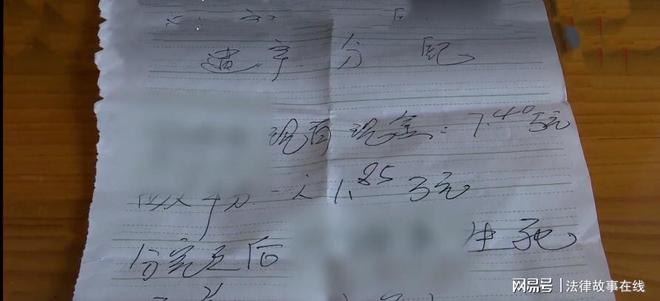 遗产分配
现有现金：7.40万元
平分一人1.85万元
分完之后 生死
网易号 | 法律故事在线